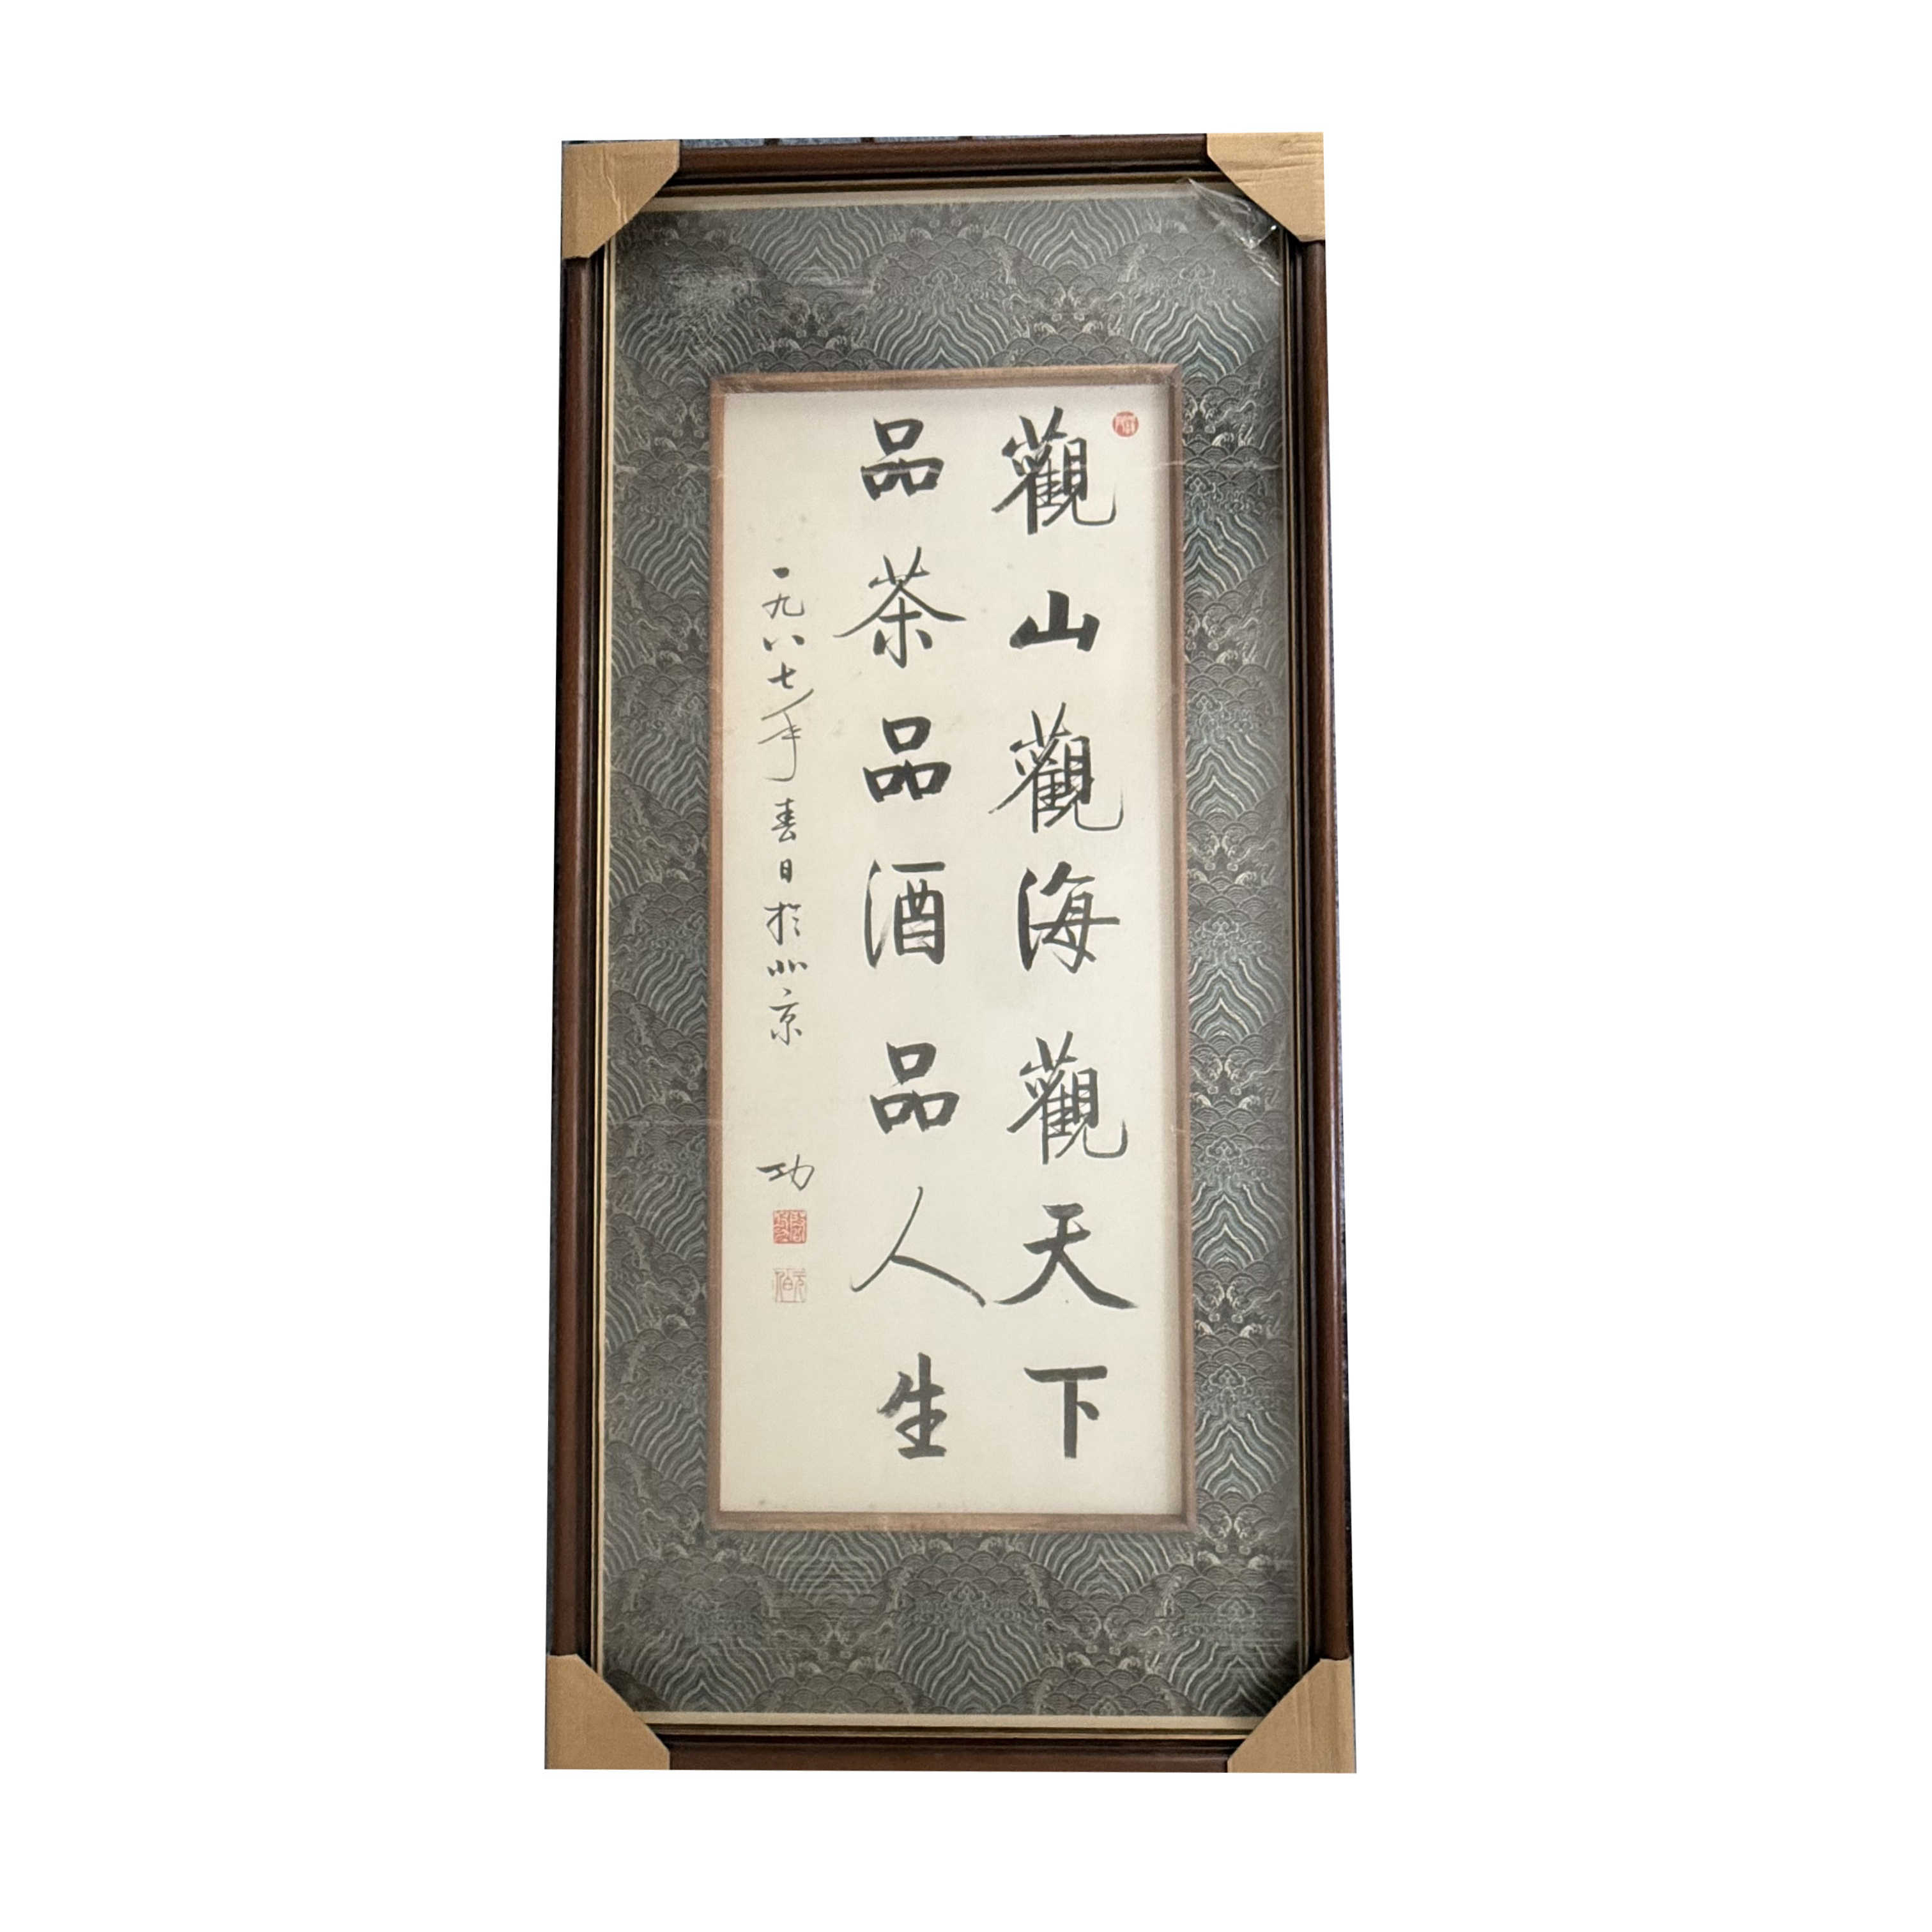 觀山觀海觀天下
品茶品酒品人生
一九八七年春日於北京 功